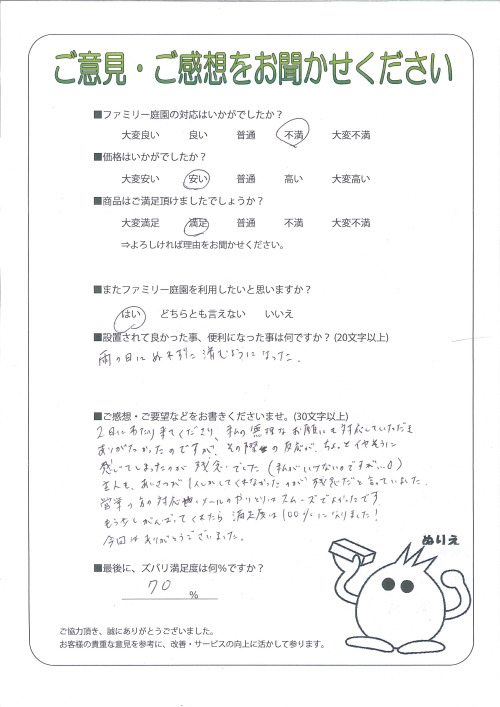 ご意見・ご感想をお聞かせください
■ファミリー庭園の対応はいかがでしたか？
大変良い 良い 普通 不満 大変不満
■価格はいかがでしたか？
大変安い 安い 普通 高い 大変高い
■商品はご満足頂けましたでしょうか？
大変満足 満足 普通 不満 大変不満
⇒よろしければ理由をお聞かせください。
■またファミリー庭園を利用したいと思いますか？
はい どちらとも言えない いいえ
■設置されて良かった事、便利になった事は何ですか？(20文字以上)
雨の日にぬれずに済むようになった.
■ご感想・ご要望などをお書きくださいませ。(30文字以上)
2日にわたり来てくださり、私の無理なお願にも対応していただき
ありがたかったのですが、その際の反応が、ちょっとイヤそうに
感じてしまったのが残念でした(私がいけないのですが…。)
主人も、あいさつが1人しかしてくれなかったのが残念だと言っていました.
営業の方の対応、メールのやりとりはスムーズでよかったです
もう少しがんばってくれたら満足度は100%になりました!
今回はありがとうございました.
■最後に、ズバリ満足度は何%ですか？
70 %
ぬりえ
ご協力頂き、誠にありがとうございました。
お客様の貴重な意見を参考に、改善・サービスの向上に活かして参ります。